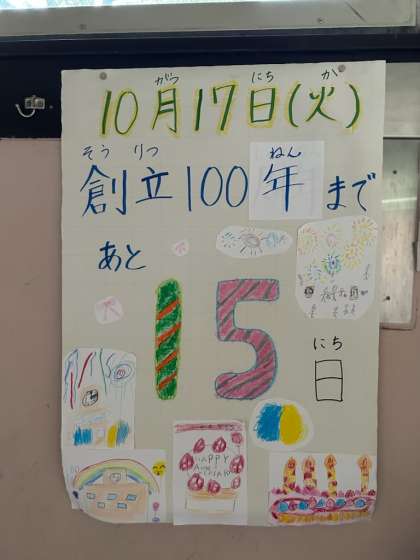 がつ にち か
10月17日(火)
そう りつ ねん
創立100年まで
あと
15
にち
日
HAPPY